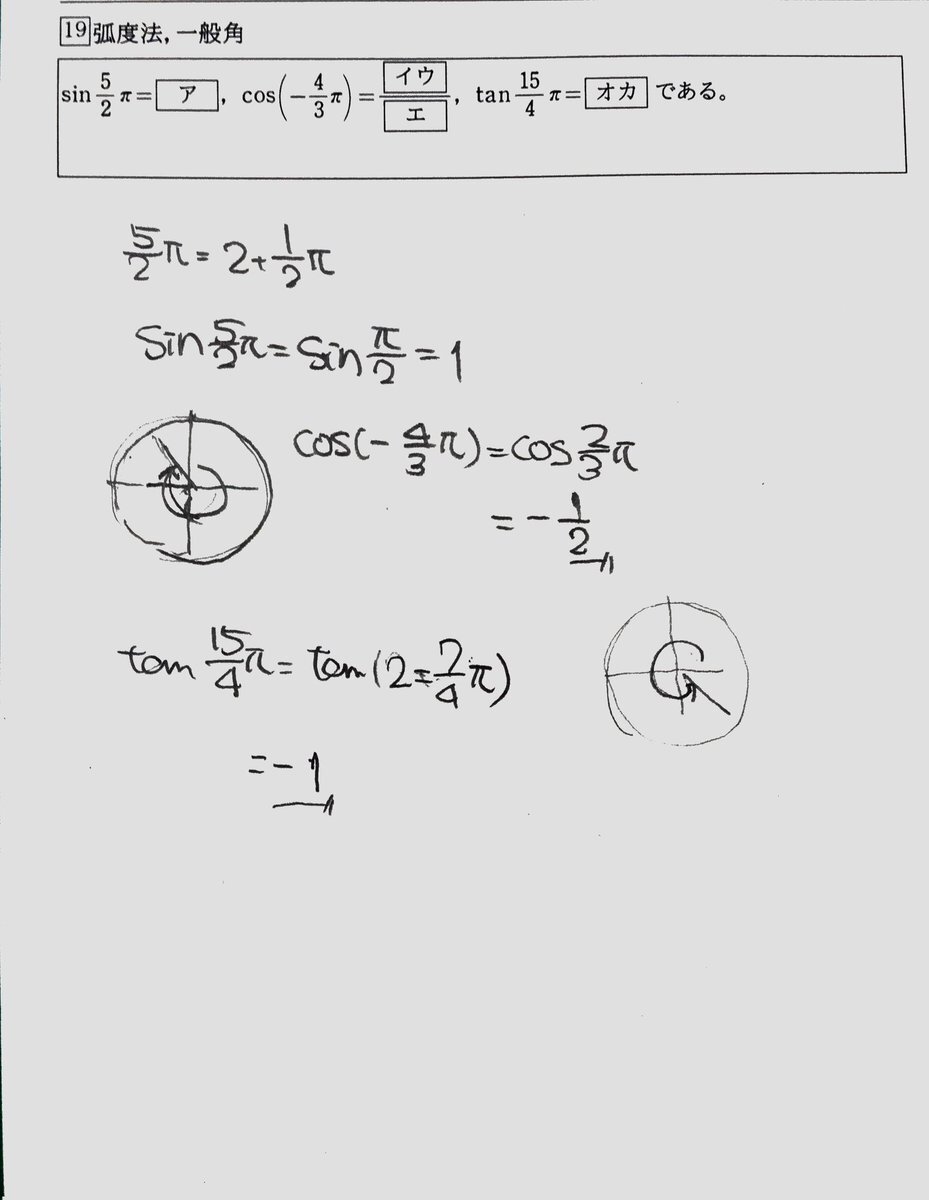 19 弧度法, 一般角
sin 5/2 π = ア , cos(−4/3 π) = イウ/エ , tan 15/4 π = オカ である。
5/2 π = 2+1/2 π
sin 5/2 π = sin π/2 = 1
cos(−4/3 π) = cos 2/3 π
= −1/2
tan 15/4 π = tan(2=7/4 π)
= −1